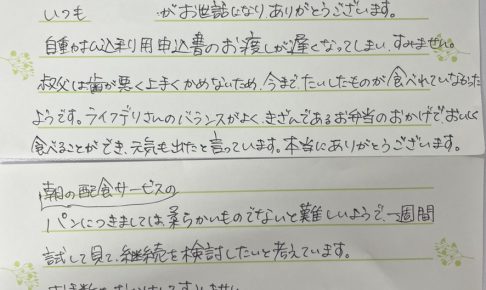 いつも　　　　がお世話になり、ありがとうございます。
自動払込利用申込書のお渡しが遅くなってしまい、すみません。
叔父は歯が悪く上手くかめないため、今まで、たいしたものが食べれていなかった
ようです。ライフデリさんのバランスがよく、きざんであるお弁当のおかげで、おいしく
食べることができ、元気も出たと言っています。本当にありがとうございます。
朝の配食サービスの
パンにつきましては、柔らかいものでないと難しいようで、一週間
試して見て、継続を検討したいと考えています。